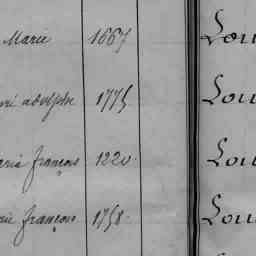 Marie 1667 Lou
nri adolphe 1775 Lou
rie françois 1220 Lou
rie françois 1758 Lou